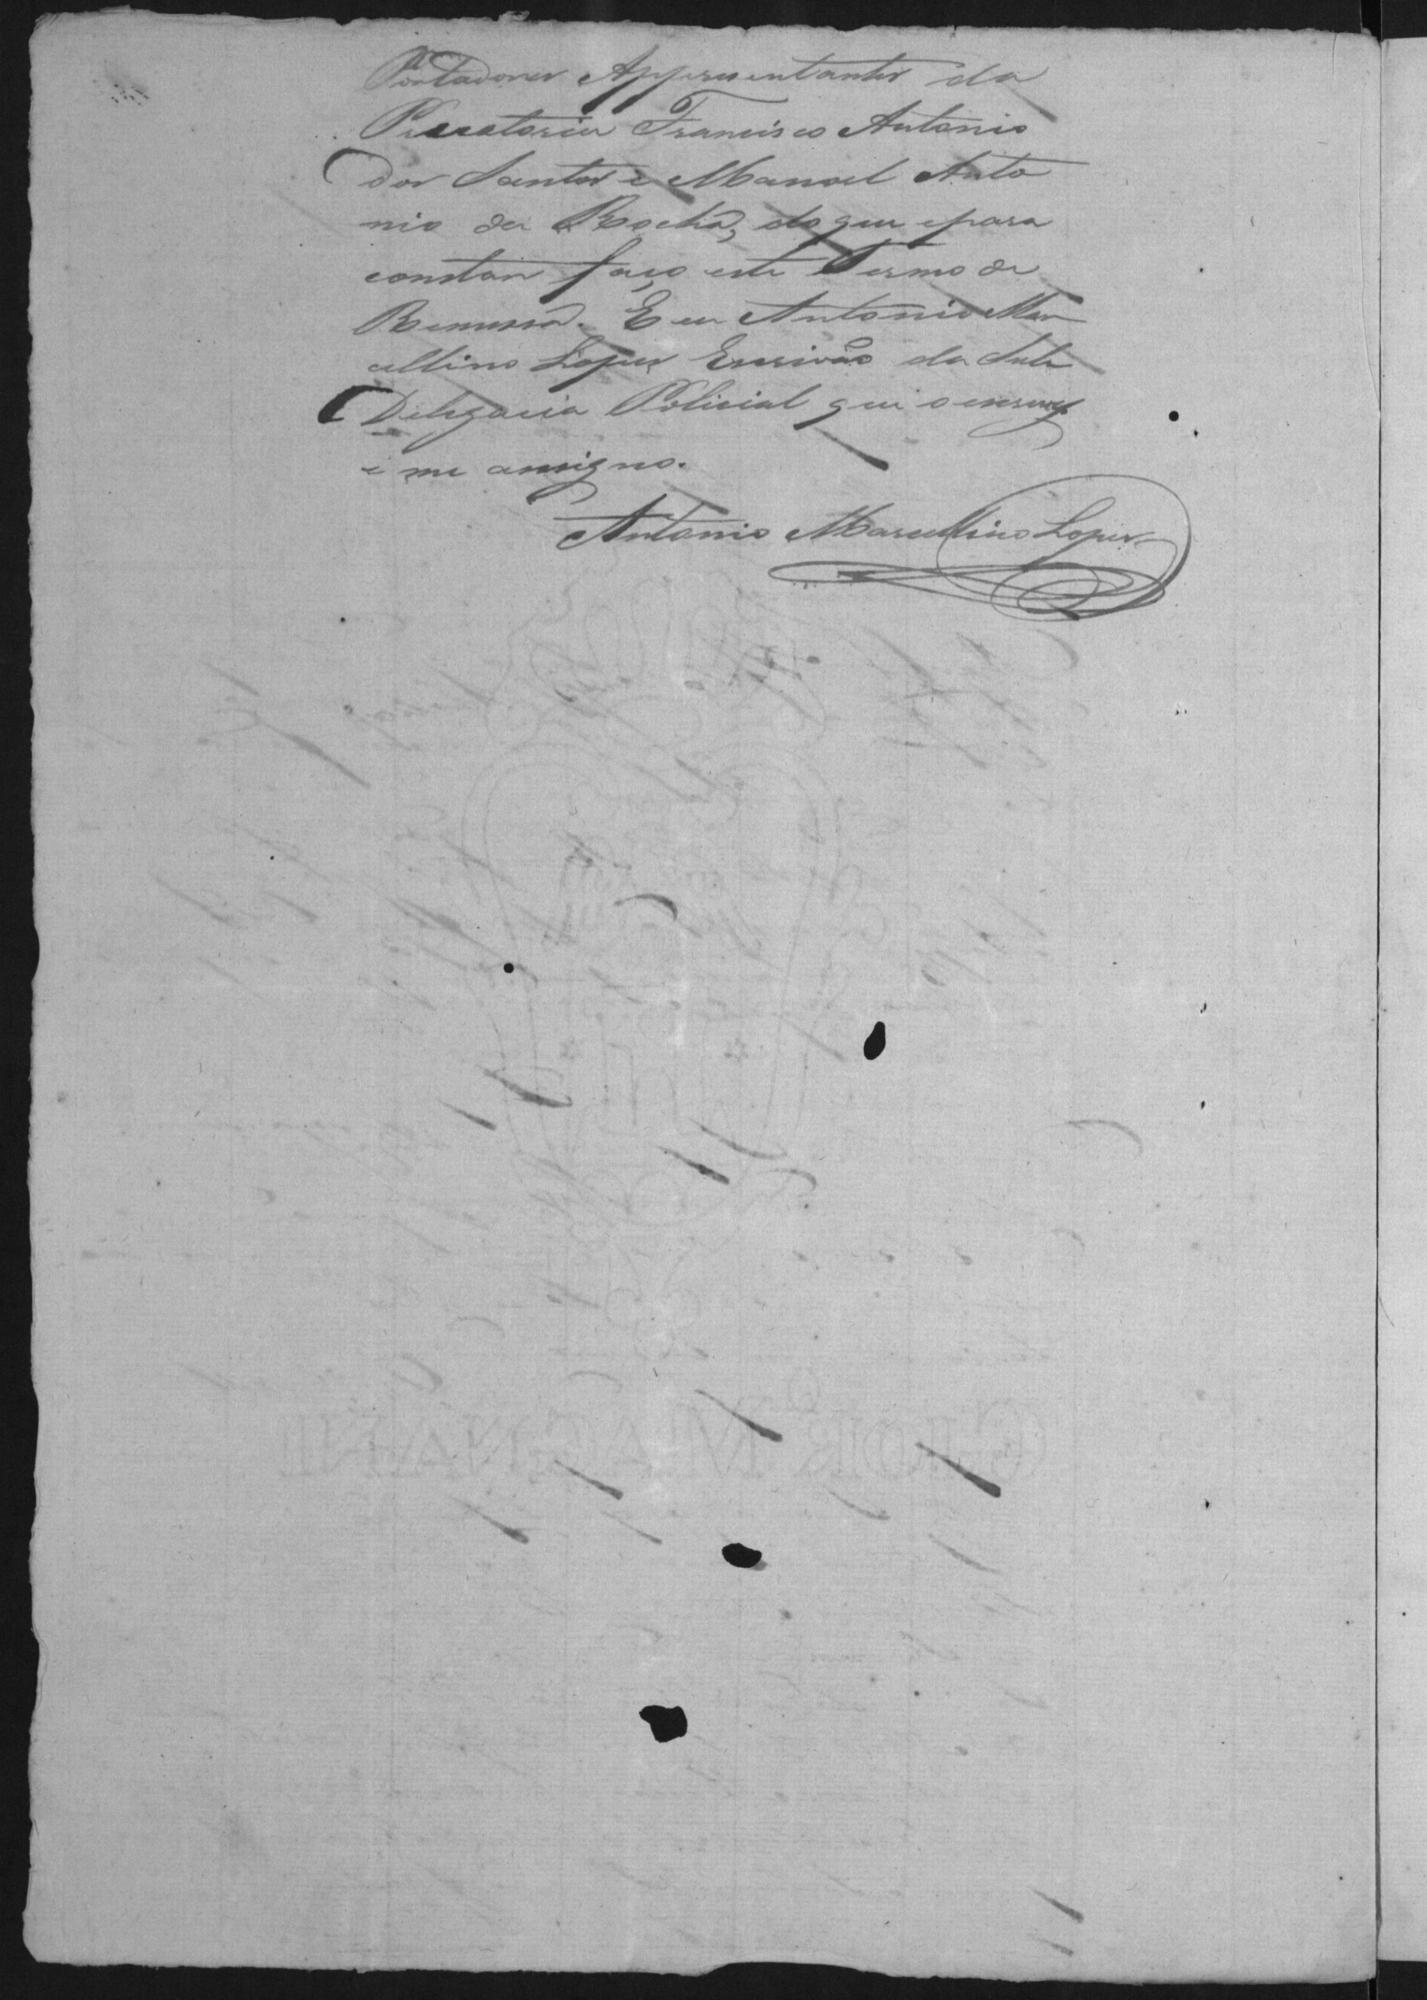 Portadores Appresentantes da
Precatoria Francisco Antonio
dos Santos e Manoel Anto
nio da Rocha, do que e para
constar faço este Termo de
Remessa. Eu Antonio Mar
cellino Lopes Escrivão da Sub
Delegacia Policial que o escrevy
e me assigno.
Antonio Marcellino Lopes
GIOR MAGNANI